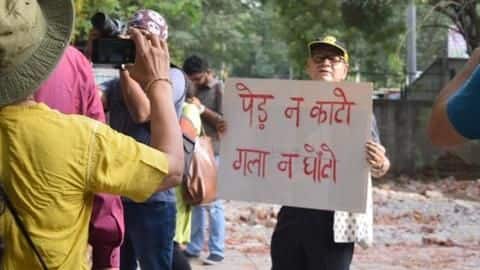 पेड़ न काटो
गला न घोंटो